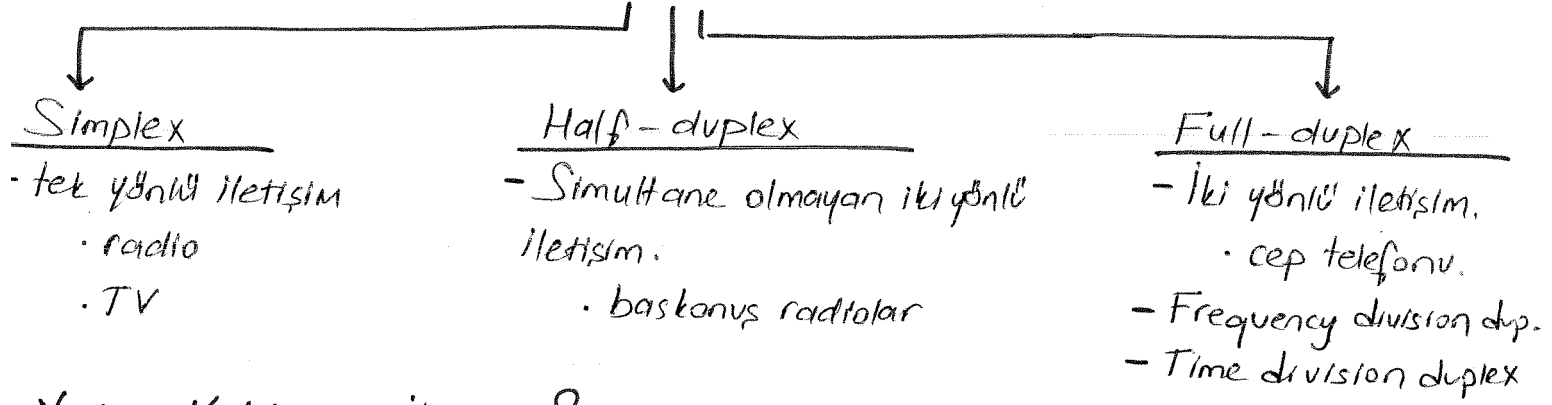 Simplex
- tek yönlü iletişim
· radio
· TV
Half-duplex
- Simultane olmayan iki yönlü
iletişim.
· baskonuş radiolar
Full-duplex
- İki yönlü iletişim.
· cep telefonu.
- Frequency division dup.
- Time division duplex